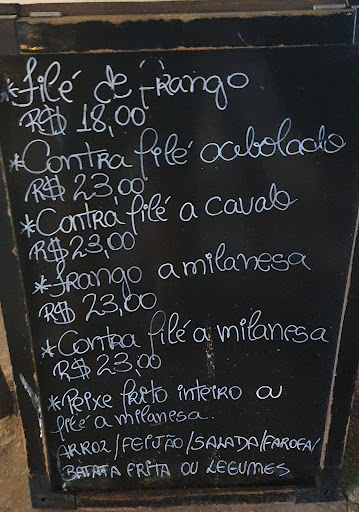 *Filé de Frango
R$ 18,00
*Contra filé acebolado
R$ 23,00
*Contra filé a cavalo
R$ 23,00
*Frango a milanesa
R$ 23,00
*Contra filé a milanesa
R$ 23,00
*Peixe frito inteiro ou
filé a milanesa.
ARROZ/FEIJÃO/SALADA/FAROFA/
BATATA FRITA OU LEGUMES